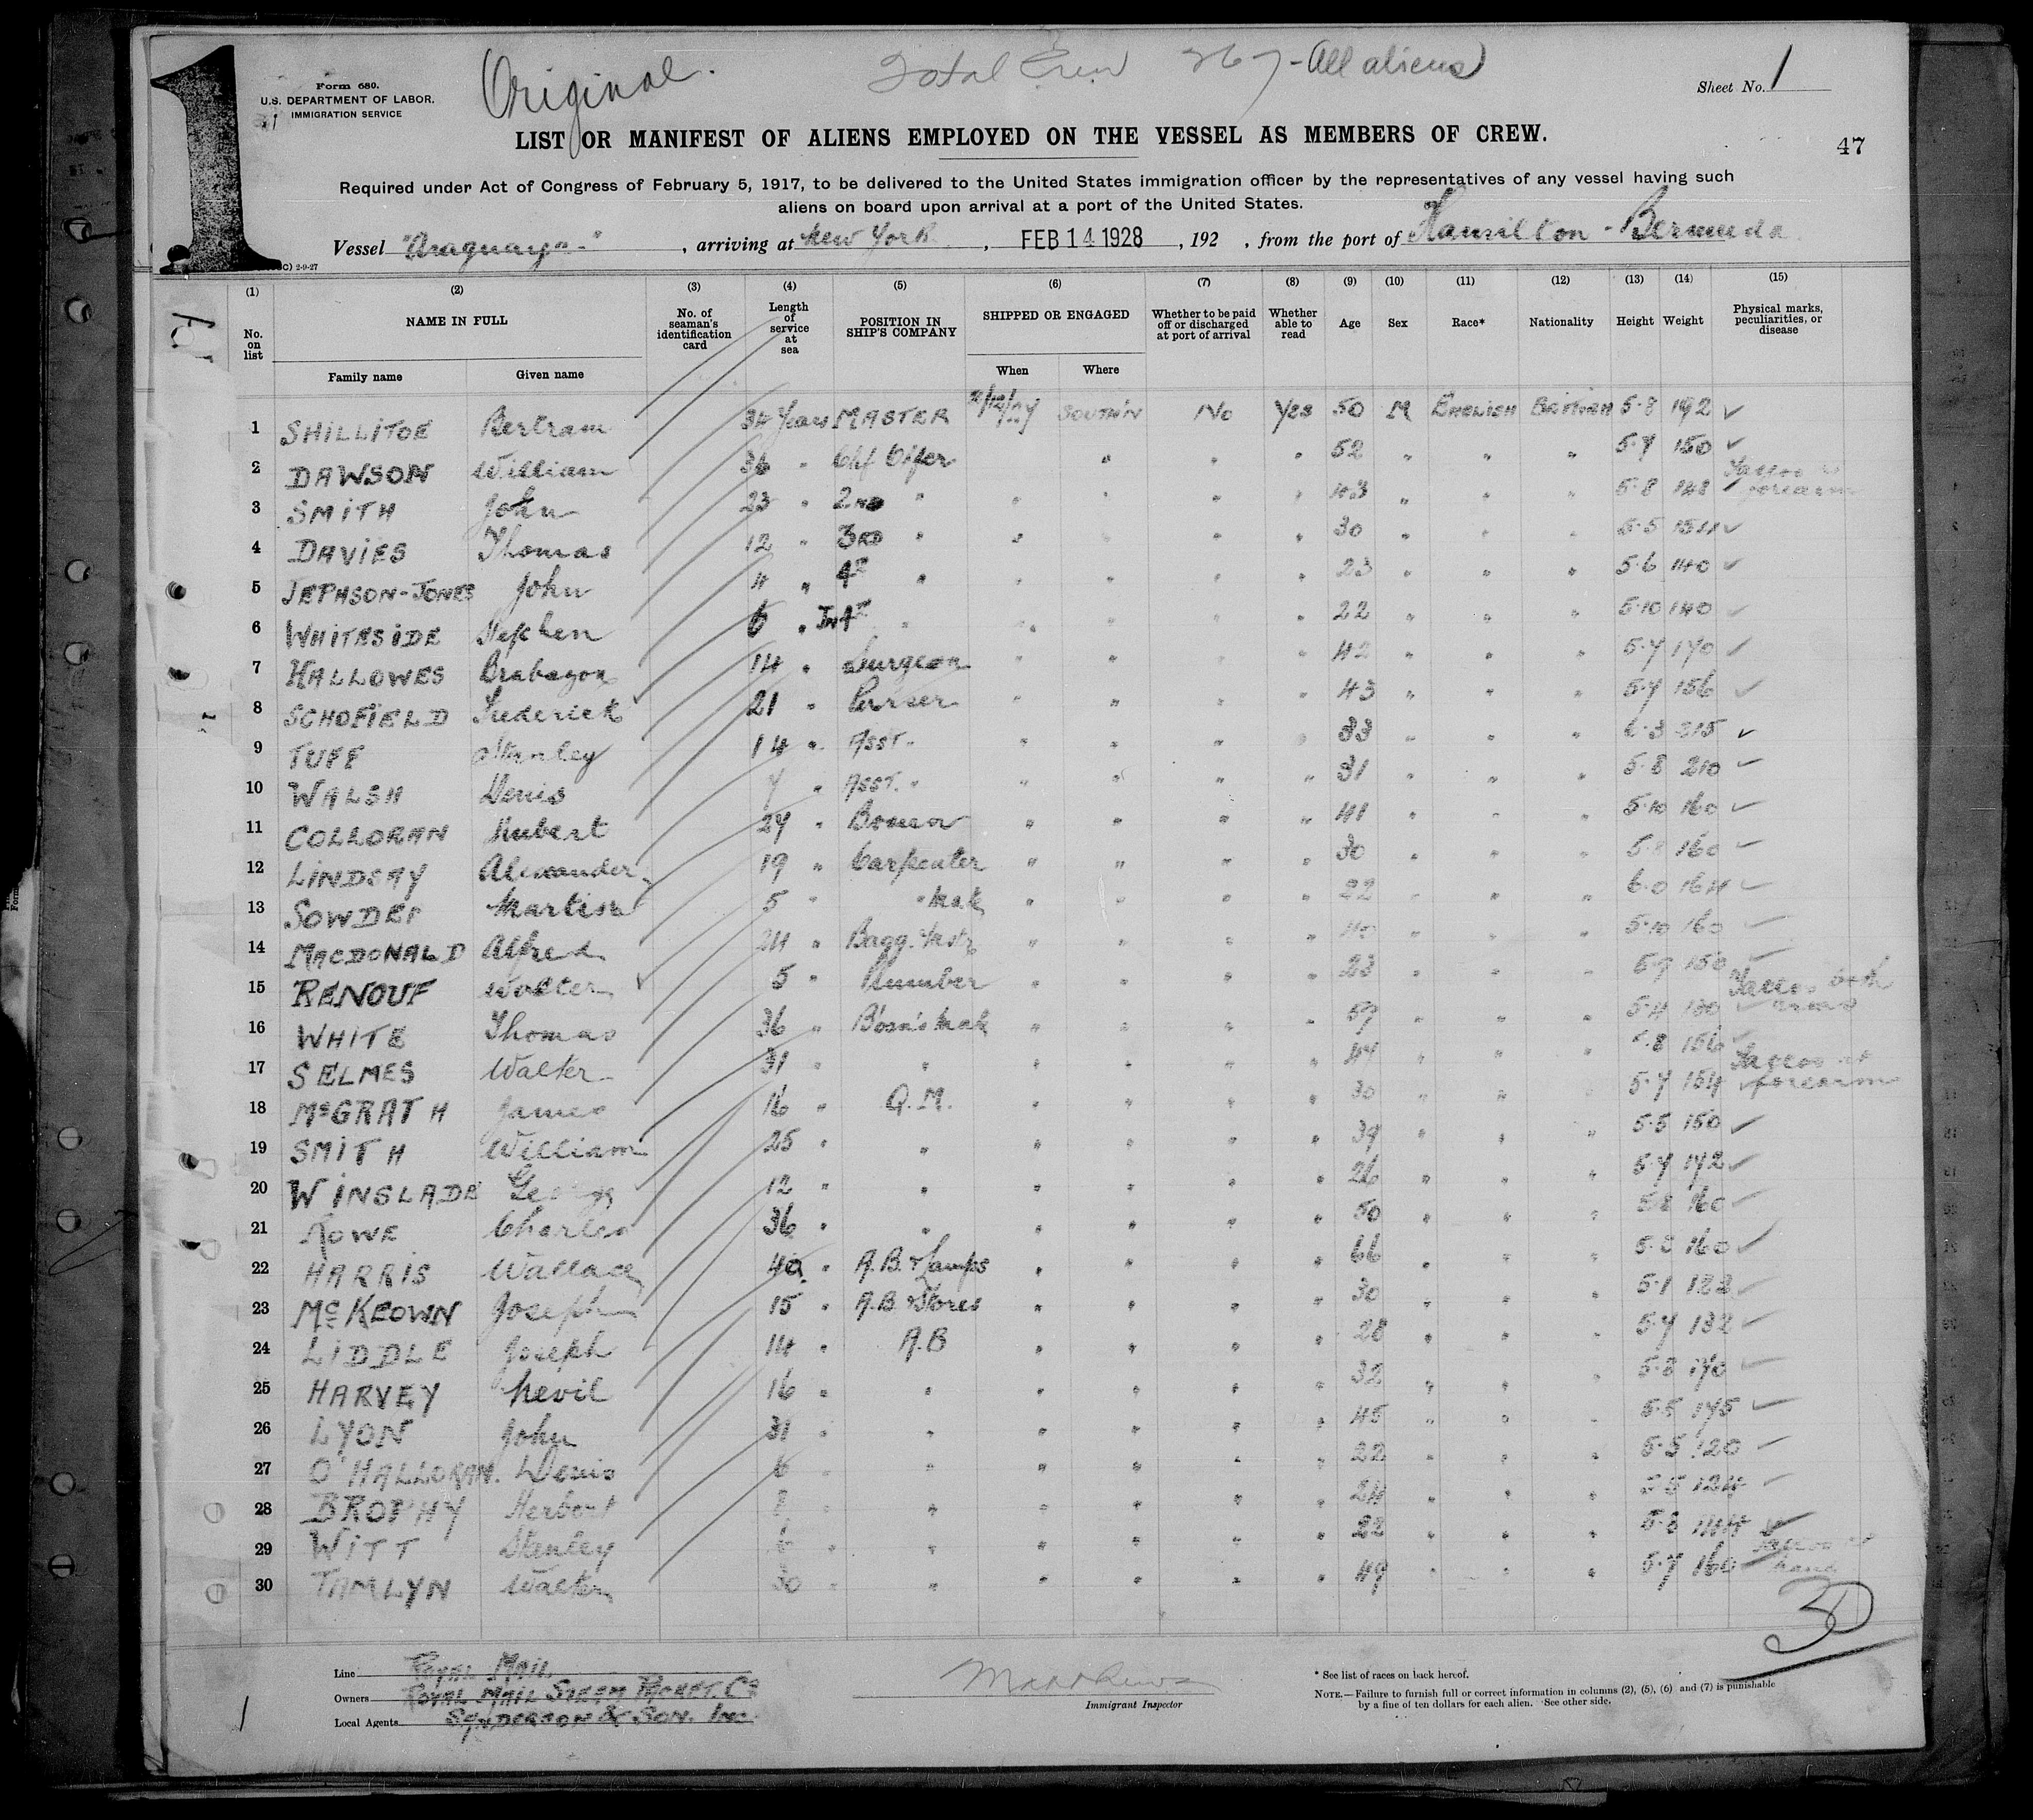 1
Form 680.
U.S. DEPARTMENT OF LABOR.
IMMIGRATION SERVICE
Original.
Total Crew 267 - All aliens
Sheet No. 1
LIST OR MANIFEST OF ALIENS EMPLOYED ON THE VESSEL AS MEMBERS OF CREW.
47
Required under Act of Congress of February 5, 1917, to be delivered to the United States immigration officer by the representatives of any vessel having such
aliens on board upon arrival at a port of the United States.
Vessel "Araguaya-", arriving at New York, FEB 14 1928, 192 , from the port of Hamilton - Bermuda
2-9-27
(1) (2) (3) (4) (5) (6) (7) (8) (9) (10) (11) (12) (13) (14) (15)
No. on list NAME IN FULL No. of seaman's identification card Length of service at sea POSITION IN SHIP'S COMPANY SHIPPED OR ENGAGED Whether to be paid off or discharged at port of arrival Whether able to read Age Sex Race* Nationality Height Weight Physical marks, peculiarities, or disease
Family name Given name When Where
1 SHILLITOE Bertram 34 Years MASTER SOUTH'N No Yes 50 M ENGLISH BRITISH 5-8 192 ✓
2 DAWSON William 36 " Chf Offer " " " 52 " " " 5-7 150 ✓
3 SMITH John 23 " 2ND " " " " " 43 " " " 5-8 148 ✓ Tattoo forearm
4 DAVIES Thomas 12 " 3RD " " " " 30 " " " 5-5 154 ✓
5 JEPHSON-JONES John 4 " 4th " " " " " 23 " " " 5-6 140 ✓
6 WHITESIDE Stephen 6 " " " " " " 22 " " " 5-10 140 ✓
7 HALLOWES Brabazon 14 " Surgeon " " " " 42 " " " 5-7 170 ✓
8 SCHOFIELD Frederick 21 " Purser " " " " 43 " " " 5-7 156 ✓
9 TUFF Stanley 14 " ASST. " " " " " 33 " " " 6-3 215 ✓
10 WALSH Denis 7 " ASST. " " " " " 31 " " " 5-8 210 ✓
11 COLLORAN Hubert 27 " " " " " 41 " " " 5-10 160 ✓
12 LINDSAY Alexander 19 " Carpenter " " " " 30 " " " 5-8 160 ✓
13 Martin 5 " " Mate " " " " 22 " " " 6-0 164 ✓
14 MACDONALD Alfred 24 " Bagg. Mstr " " " " 40 " " " 5-10 160 ✓
15 RENOUF Walter 5 " Plumber " " " " 23 " " " 5-9 150 ✓
16 WHITE Thomas 36 " Bosn's Mate " " " " 59 " " " 5-4 130 ✓ Tattoo both arms
17 SELMES Walter 31 " " " " " " 47 " " " 5-8 156 ✓
18 McGRATH James 16 " Q.M. " " " " 30 " " " 5-7 154 ✓ Tattoo forearm
19 SMITH William 25 " " " " " " 39 " " " 5-5 150 ✓
20 WINSLADE George 12 " " " " " " 26 " " " 5-7 172 ✓
21 ROWE Charles 36 " " " " " " 50 " " " 5-8 160 ✓
22 HARRIS Wallace 40 " A.B. Lamps " " " " 66 " " " 160 ✓
23 McKEOWN Joseph 15 " A.B. Stores " " " " 30 " " " 5-1 122 ✓
24 LIDDLE Joseph 14 " A.B " " " " 28 " " " 5-7 132 ✓
25 HARVEY Nevil 16 " " " " " " 32 " " " 5-8 170 ✓
26 LYON John 31 " " " " " " 45 " " " 5-5 175 ✓
27 O'HALLORAN. Denis 6 " " " " " " 22 " " " 5-5 120 ✓
28 BROPHY Herbert 8 " " " " " " 24 " " " 5-5 124 ✓
29 WITT Stanley 6 " " " " " " 22 " " " 5-8 144 ✓
30 TAMLYN Walter 30 " " " " " " 49 " " " 5-7 160 Tattoo hand
30
Line Royal Mail
Owners Royal Mail Steam Packet Co
Local Agents Sanderson & Son. Inc.
1
Matthews
Immigrant Inspector
* See list of races on back hereof.
NOTE.—Failure to furnish full or correct information in columns (2), (5), (6) and (7) is punishable
by a fine of ten dollars for each alien. See other side.